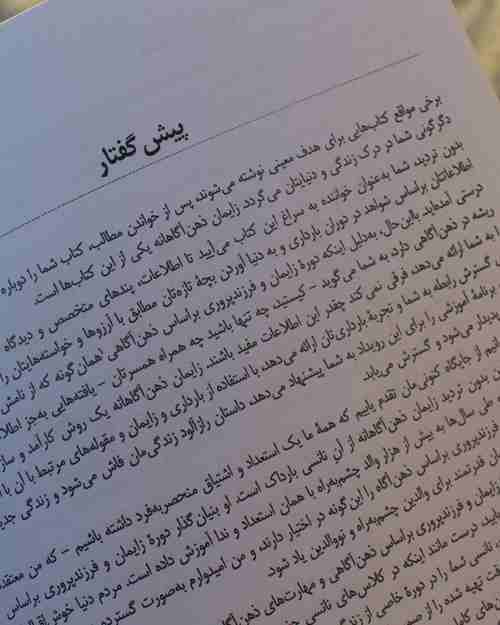 پیش گفتار
برخی مواقع کتاب‌هایی برای هدف معینی نوشته می‌شوند پس از خواندن مطالب، کتاب شما را دوباره
دگرگونی شما در درک زندگی و دنیایتان می‌گردد. زایمان ذهن‌آگاهانه یکی از این کتاب‌ها است.
بدون تردید، شما به‌عنوان خواننده به سراغ این کتاب می‌آیید تا اطلاعات، پندهای متخصص و دیدگاه
اطلاعاتتان براساس شواهد در دوران بارداری و به دنیا آوردن بچهٔ تازه‌تان مطابق با آرزوها و خواسته‌هایتان را
درستی آمده‌اید. بااین‌حال، به‌دلیل اینکه دورهٔ زایمان و فرزندپروری براساس ذهن‌آگاهی همان‌گونه که از نامش
ریشه در ذهن‌آگاهی دارد، به شما می‌گوید - کیستید، چه تنها باشید چه همراه همسرتان - یافته‌هایی به‌جز اطلا
ا به شما ارائه می‌دهد. فرقی نمی‌کند چقدر این اطلاعات مفید باشند، زایمان ذهن‌آگاهانه یک روش کارآمد و ساز
گسترش رابطه به شما و تجربهٔ بارداری‌تان ارائه می‌دهد. با استفاده از بارداری و زایمان و مقوله‌های مرتبط با آن با ا
برنامهٔ آموزشی را برای این رویداد به شما پیشنهاد می‌دهد، داستان رازآلود زندگی‌مان فاش می‌شود و زندگی جدی
پدیدار می‌شود و گسترش می‌یابد
انیم از جایگاه کنونی‌مان تقدم یابیم که همهٔ ما یک استعداد و اشتیاق منحصربه‌فرد داشته باشیم - که من معتقد
ن بدون تردید زایمان ذهن‌آگاهانه از آن نانسی بارداک است. او بنیان گذار دورهٔ زایمان و فرزندپروری براساس
طی سال‌ها به بیش از هزار والد چشم‌به‌راه با همان استعداد و ندا آموزش داده است. مردم دنیا خوش‌اقبال
فرزندپروری براساس ذهن‌آگاه را این‌گونه در اختیار دارند و من امیدوارم به‌صورت گسترده
ان قدرتمند برای والدین چشم‌به‌راه و نووالدین یاد شود
زایمان و فرزندپروری براساس ذهن‌آگاهی و مهارت‌های ذهن
یابید، درست مانند اینکه در کلاس‌های نانسی
نانسی شما را در دورهٔ خاصی از زندگی
قت تهیه شده را از